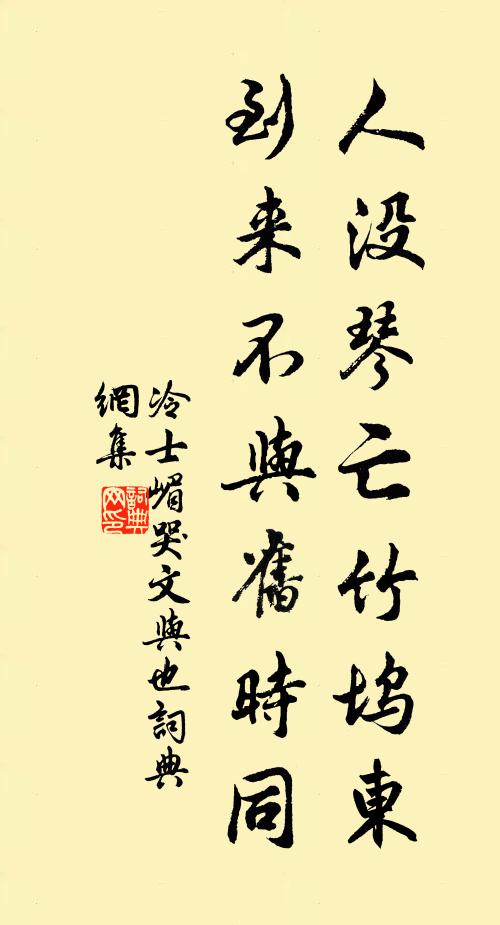 人没琴亡竹坞東
到来不與舊時同
冷士嵋哭文與也詞典
網集
詞典
网印